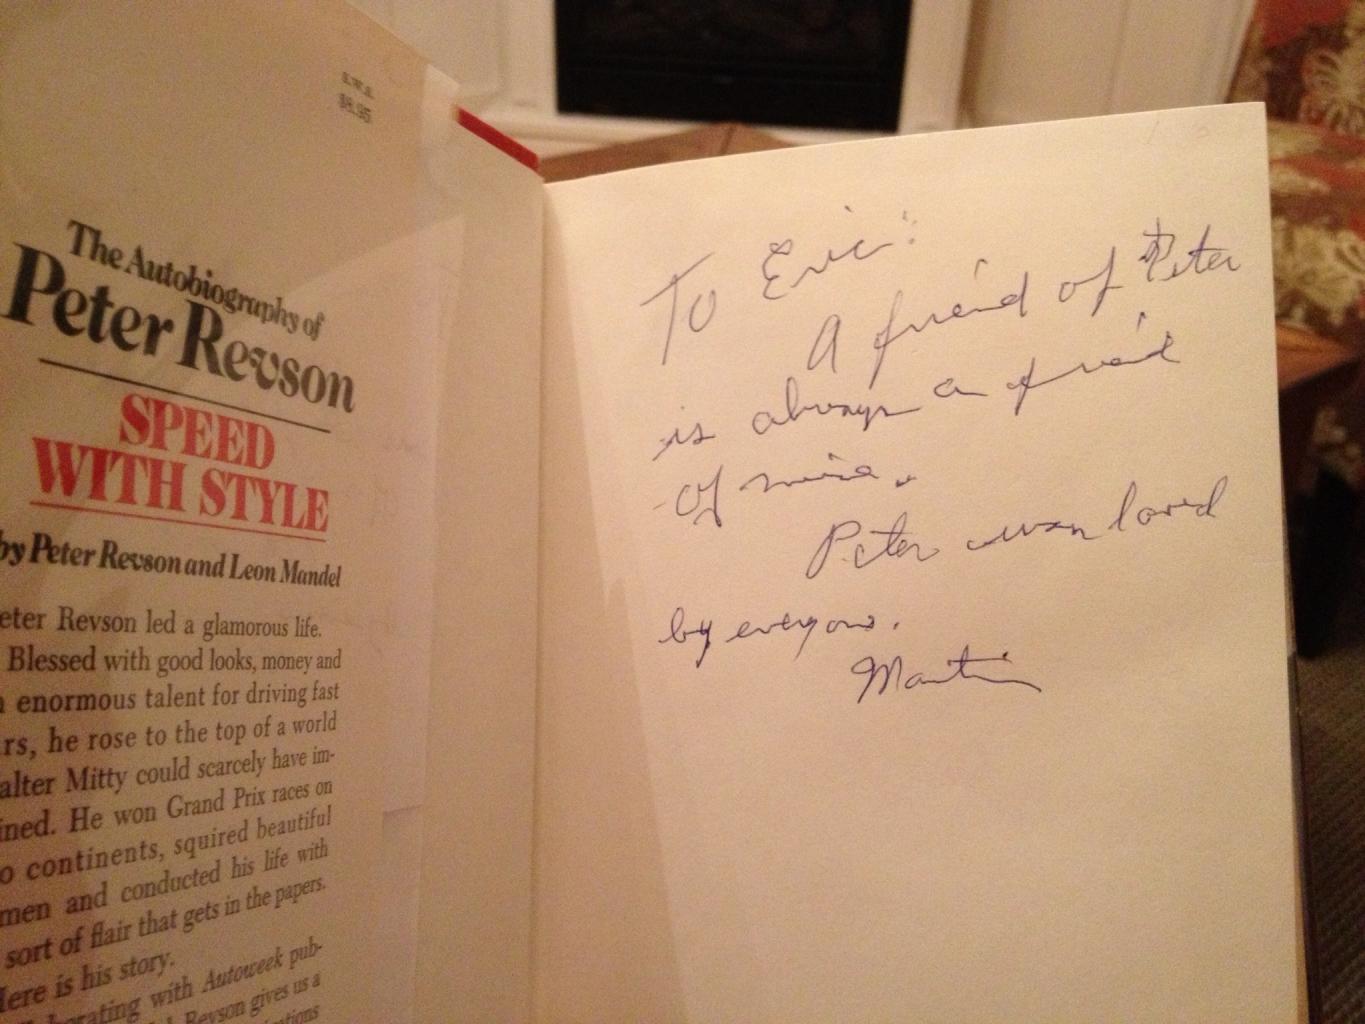 S.W.S.
$8.95
The Autobiography of
Peter Revson
SPEED
WITH STYLE
by Peter Revson and Leon Mandel
eter Revson led a glamorous life.
Blessed with good looks, money and
n enormous talent for driving fast
rs, he rose to the top of a world
alter Mitty could scarcely have im-
ined. He won Grand Prix races on
o continents, squired beautiful
men and conducted his life with
sort of flair that gets in the papers.
Here is his story.
borating with Autoweek pub-
Revson gives us a
To Eric:
A friend of Peter
is always a friend
of mine.
Peter was loved
by everyone.
Martin